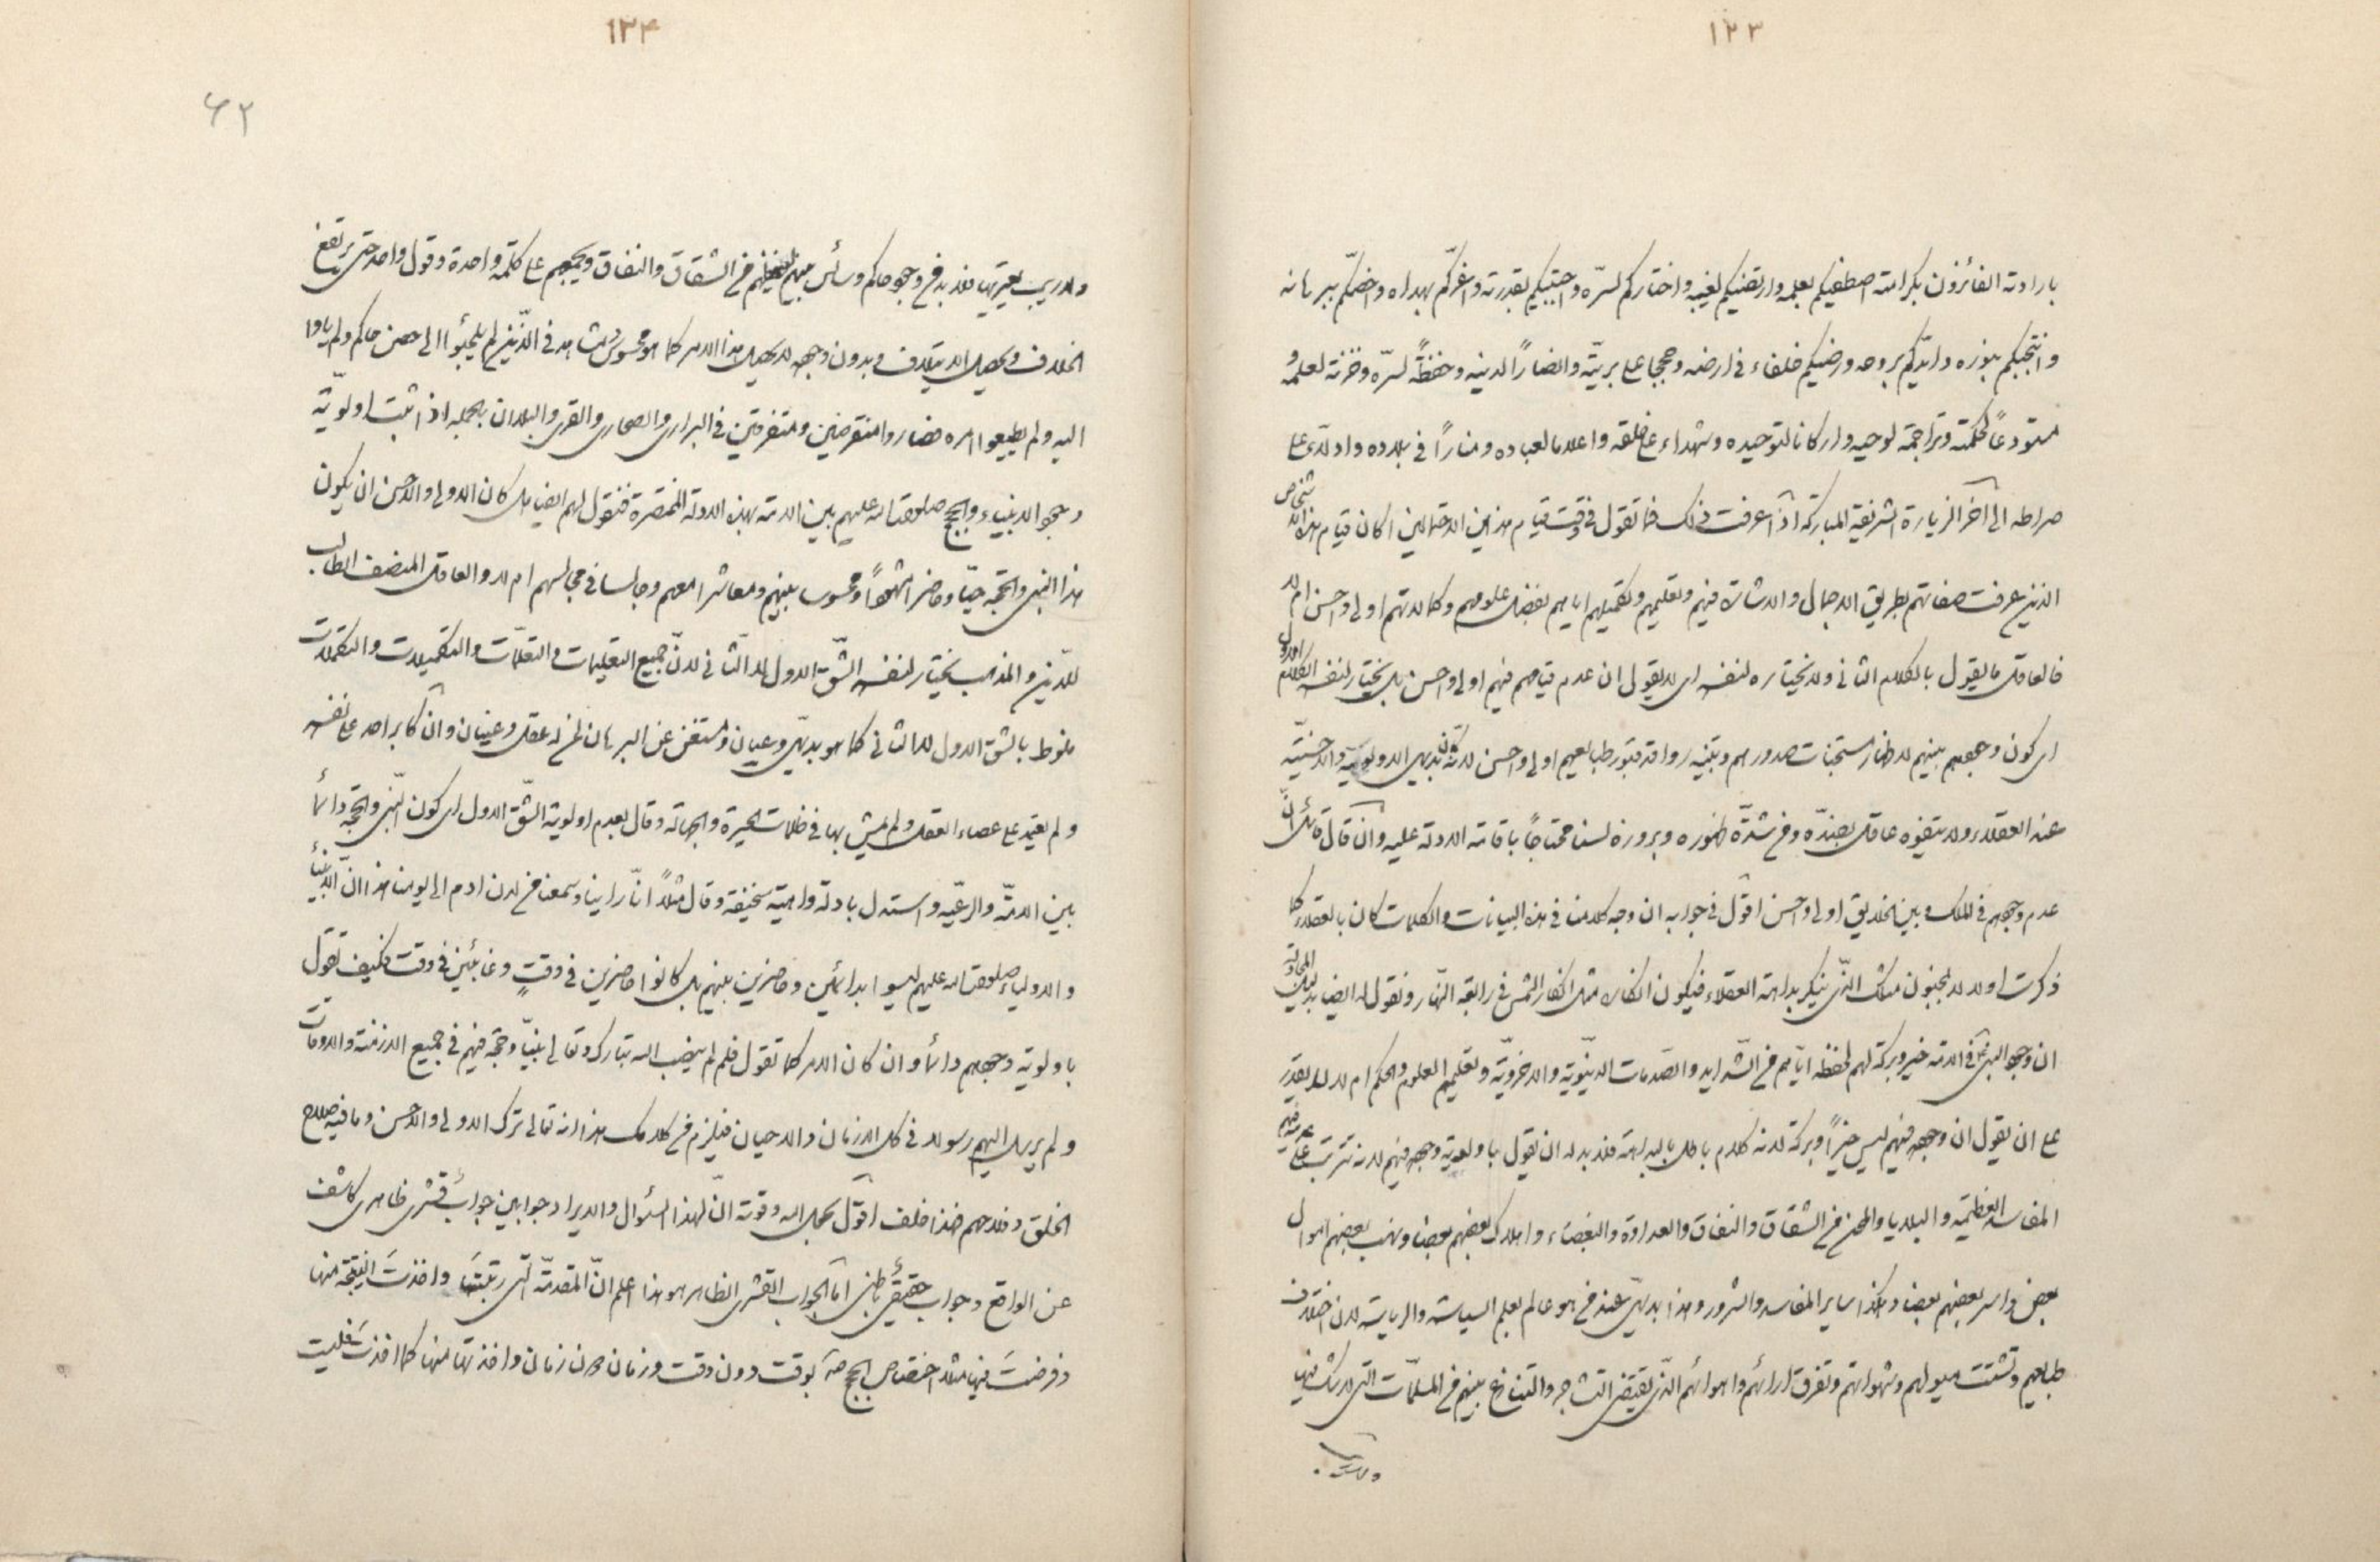 ١٢٣
بارادته الفائزون بكرامته اصطفيكم بعلمه وارتضيكم لغيبه واختاركم لسرّه واجتبيكم بقدرته واعزّكم بهداه وخصّكم ببرهانه
وانتجبكم بنوره وايّدكم بروحه ورضيكم خلفاء فى ارضه وحججا على بريّته وانصاراً لدينه وحفظةً لسرّه وخزنة لعلمه و
مستودعاً لحكمته وتراجمة لوحيه واركانا لتوحيده وشهداء على خلقه واعلاما لعباده ومناراً فى بلاده وادلّاء على
صراطه الى آخر الزيارة الشريفة المباركة اذا عرفت ذلك فما تقول فى وقت قيام هذين الاحتمالين اكان قيام هذه الاشخاص
الذين عرفت صفاتهم بطريق الاجمال والاشارة فيهم وتعليمهم وتكميلهم اياهم بفضل علومهم وكمالاتهم اولى واحسن ام لا
فالعاقل ما يقول بالكلام الثانى ولا يختاره لنفسه اى لا يقول ان عدم قيامهم فيهم اولى واحسن بل يختار لنفسه الكلام الاول
اى كون وجودهم بينهم لاظهار مستجنات صدورهم وتنبيه رواقد قبور طبايعهم اولى واحسن لانّه كان بديهى الاولوية والاحسنيّة
عند العقلاء ولا يتفوّه عاقل بضدّه ومن شدّة ظهوره وبروزه لسنا محتاجاً باقامة الادلة عليه وان قال قائل انّ
عدم وجودهم فى الملك وبين الخلايق اولى واحسن اقول فى جوابه ان وجه كلامنا فى هذه البيانات والكلمات كان بالعقلاء كما
ذكرت اولا لا المجنون مثلك الذى ينكر بداهة العقلاء فيكون انكاره مثل انكار الشمس فى رابعة النهار ونقول له ايضا بدليل المجادلة
ان وجود النبى فى الامة خير وبركة لهم لحفظه ايّاهم من الشدايد والصدمات الدنيوية والاخرويّة وتعليمهم العلوم والحكم ام لا لا يقدر
على ان يقول ان وجوده فيهم ليس خيراً وبركة لانه كلام باطل بالبداهة فلا بد له ان يقول باولوية وجوده فيهم لانه تترتب على عدمه فيهم
المفاسد العظيمة والبلايا والمحن من الشقاق والنفاق والعداوة والبغضاء واهلاك بعضهم بعضا ونهب بعضهم اموال
بعض واسر بعضهم بعضا وهكذا ساير المفاسد والشرور وهذا بديهىّ عند من هو عالم بعلم السياسة والرياسة لان اختلاف
طبايعهم وتشتت ميولهم وشهواتهم وتفرق ارائهم واهوائهم الذى يقتضى التشاجر والتنازع بينهم من المسلّمات التى لا شك فيها
١٢۴
۶٢
ولا ريب يعتريها فلا بد من وجود حاكم وسائس بينهم يحفظهم من الشقاق والنفاق ويجمعهم على كلمة واحدة وقول واحد حتى يرتفع
الخلاف ويحصل الايتلاف وبدون وجوده لا يحصل هذا الامر كما هو محسوس ومشاهد فى الذين لم يلجئوا الى حصن حاكم ولم ياووا
اليه ولم يطيعوا امره فصاروا منقرضين ومتفرقين فى البرارى والصحارى والقرى والبلدان بالجملة اذا اثبت اولويّة
وجود الانبياء والحجج صلوات الله عليهم بين الامة بهذه الادلة المختصرة فنقول لهم ايضا هل كان الاولى والاحسن ان يكون
هذا النبى والحجّة حيّا وحاضرا مشهوداً ومحسوسا بينهم ومعاشرا معهم وجالسا فى مجالسهم ام لا والعاقل المنصف الطالب
للدّين والمذهب يختار لنفسه الشّق الاول لا الثانى لانّ جميع التعليمات والتعلّمات والتكميلات والتكملات
منوط بالشق الاول لا الثانى كما هو بديهىّ وعيان ومستغن عن البرهان لمن له عقل وعينان وان كابر احد على نفسه
ولم يعتمد على عصاء العقل ولم يمش بها فى ظلمات الحيرة والجهالة وقال بعدم اولوية الشّق الاول اى كون النّبى والحجّة دائماً
بين الامّة والرعيّة واستدل بادلة واهية سخيفة وقال مثلاً انّا راينا وسمعنا من لدن ادم الى يومنا هذا انّ الانبياء
والاولياء صلوات الله عليهم ليسوا بدائمين وحاضرين بينهم بل كانوا حاضرين فى وقتٍ وغائبين فى وقت فكيف تقول
باولوية وجودهم دائما وان كان الامر كما تقول فلم لم ينصب الله تبارك وتعالى نبيّا وحجّة فيهم فى جميع الازمنة والاوقات
ولم يرسل اليهم رسولا فى كل الازمان والاحيان فيلزم من كلامك هذا انه تعالى ترك الاولى والاحسن وما فيه صلاح
الخلق وفلاحهم هذا خلف اقول بحول الله وقوته انّ لهذا السئوال والايراد جوابين جواب قشرى ظاهرى كاشف
عن الواقع وجواب حقيقىّ باطنى امّا الجواب القشرى الظاهر هو هذا اعلم انّ المقدمّة الّتى رتبتَها واخذتَ النتيجة منها
وفرضتَ فيها مثلا اختصاص الحجج بوقت دون وقت وزمان دون زمان واخذتها منها كما اخذتَ فليست